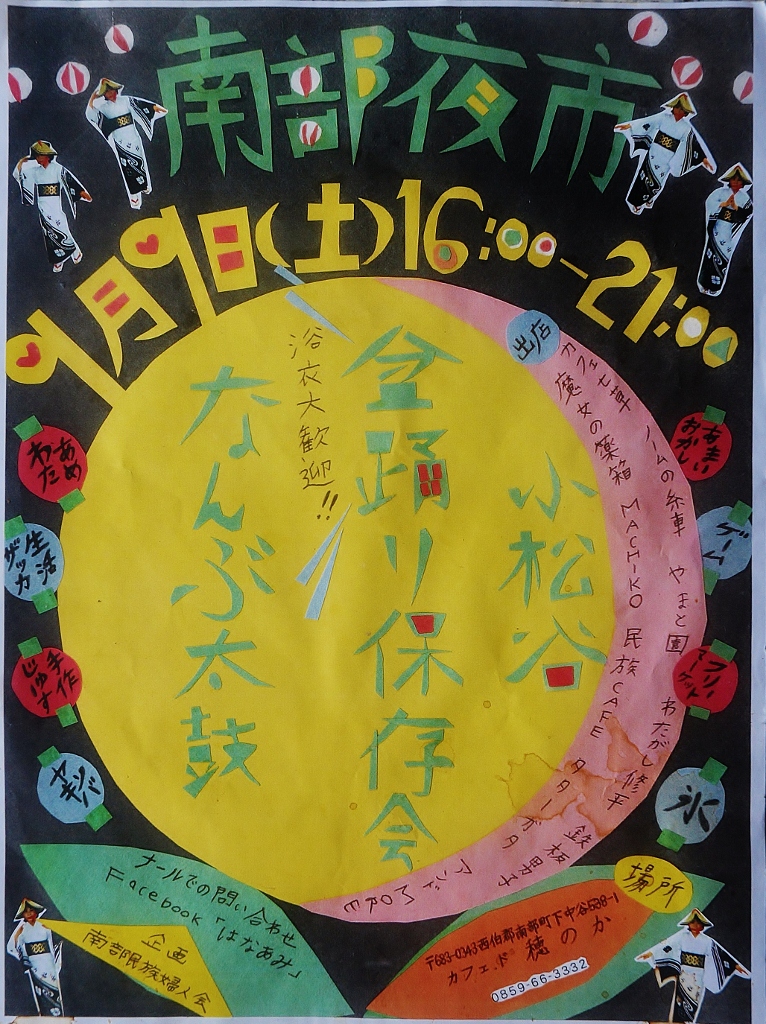 南部夜市
9月9日(土)16:00-21:00
出店
カフェ七草 ノームの糸車 やまと園 わたがし修平
魔女の薬箱 MACHIKO 民族CAFE タターガタ 鉄板男子
アンドMORE
小松谷
盆踊り保存会
浴衣大歓迎!!
なんぶ太鼓
あめ
わた
生活
ザッカ
手作
じゅす
ヤキソバ
あまい
おかし
ゲーム
フリー
マーケット
氷
メールでの問い合わせ
Facebook「はなあみ」
企画
南部民族婦人会
場所
〒683-0343西伯郡南部町下中谷538-1
カフェ.ド 穂のか
0859-66-3332